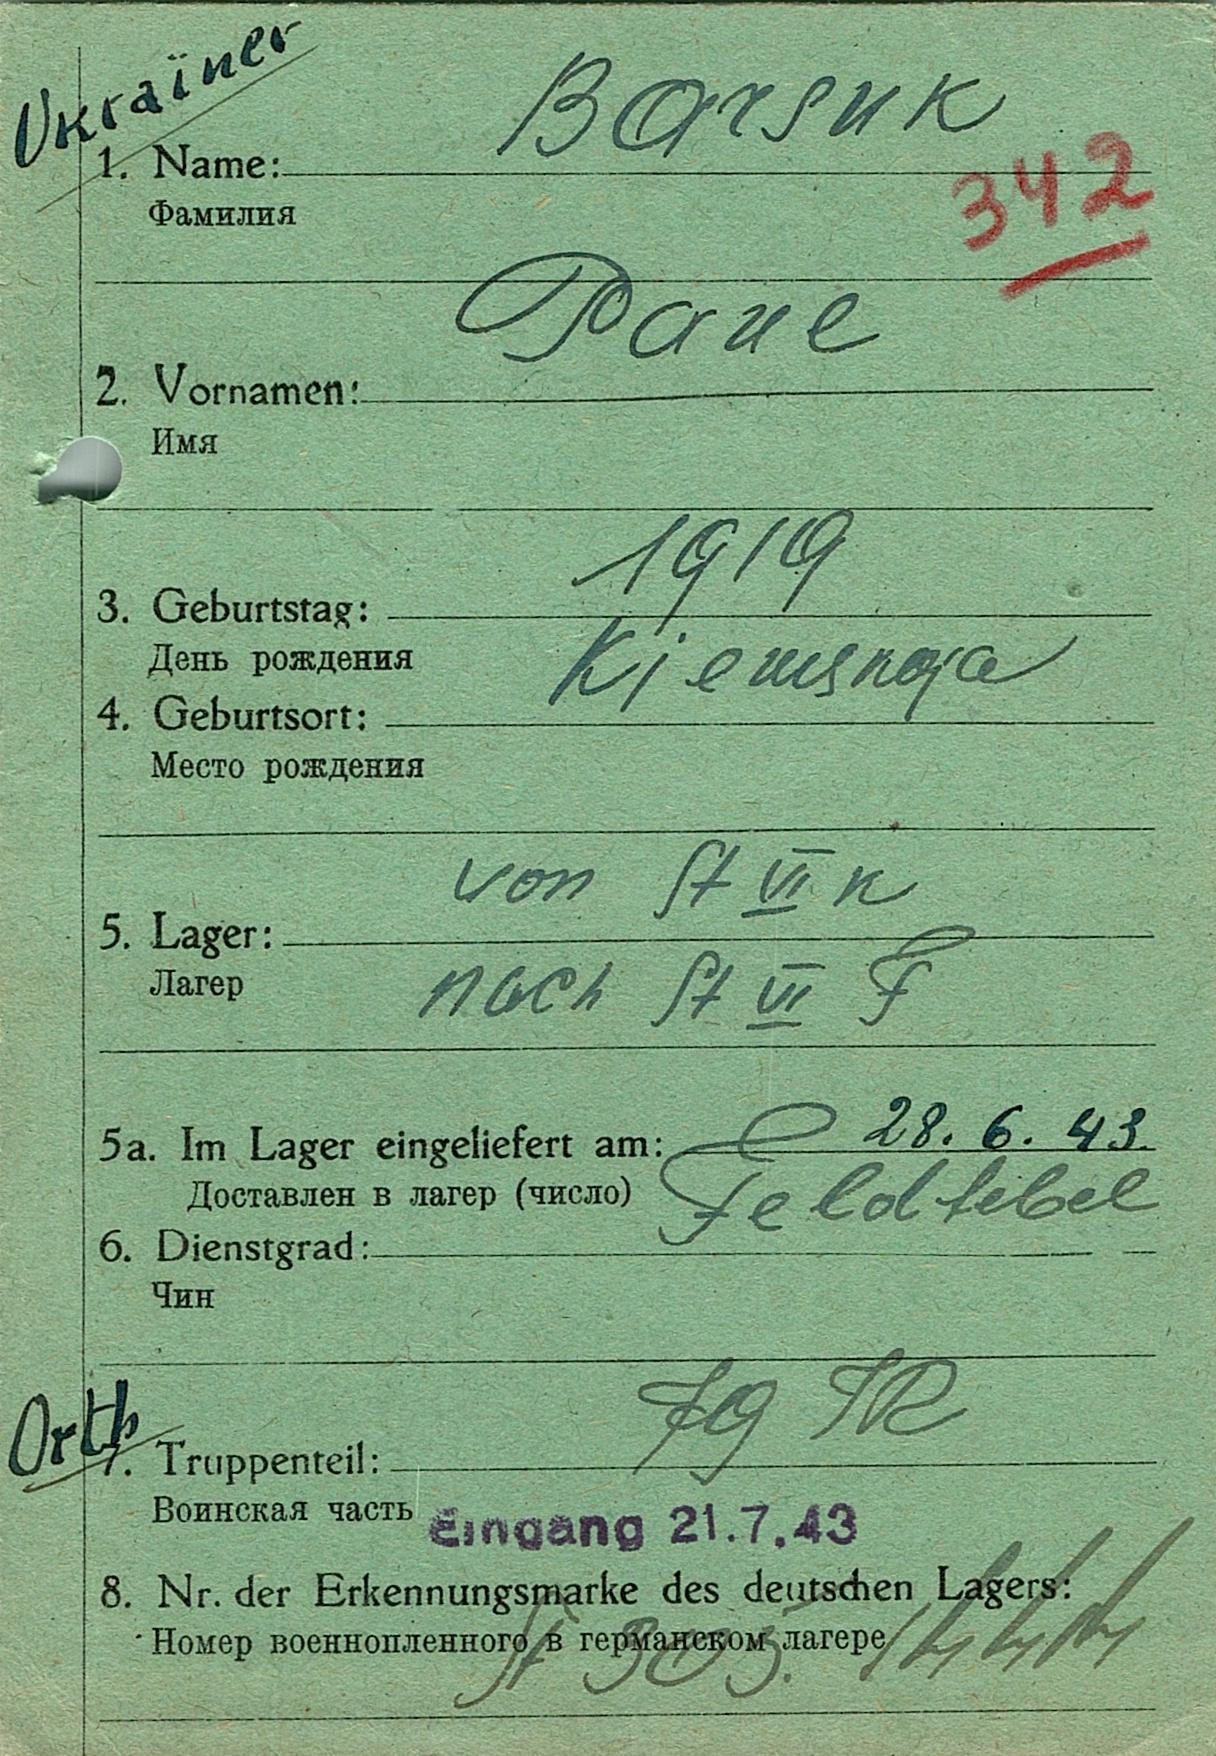 Ukraïner
Barsuk
1. Name:
Фамилия
342
Paue
2. Vornamen:
Имя
1919
3. Geburtstag:
День рождения
Kjewskaja
4. Geburtsort:
Место рождения
von St VI K
5. Lager:
Лагер
nach St VI F
5a. Im Lager eingeliefert am: 28. 6. 43.
Доставлен в лагер (число)
Feldfebel
6. Dienstgrad:
Чин
Orth
7. Truppenteil:
Воинская часть
Eingang 21.7.43
8. Nr. der Erkennungsmarke des deutschen Lagers:
Номер военнопленного в германском лагере
St 303.